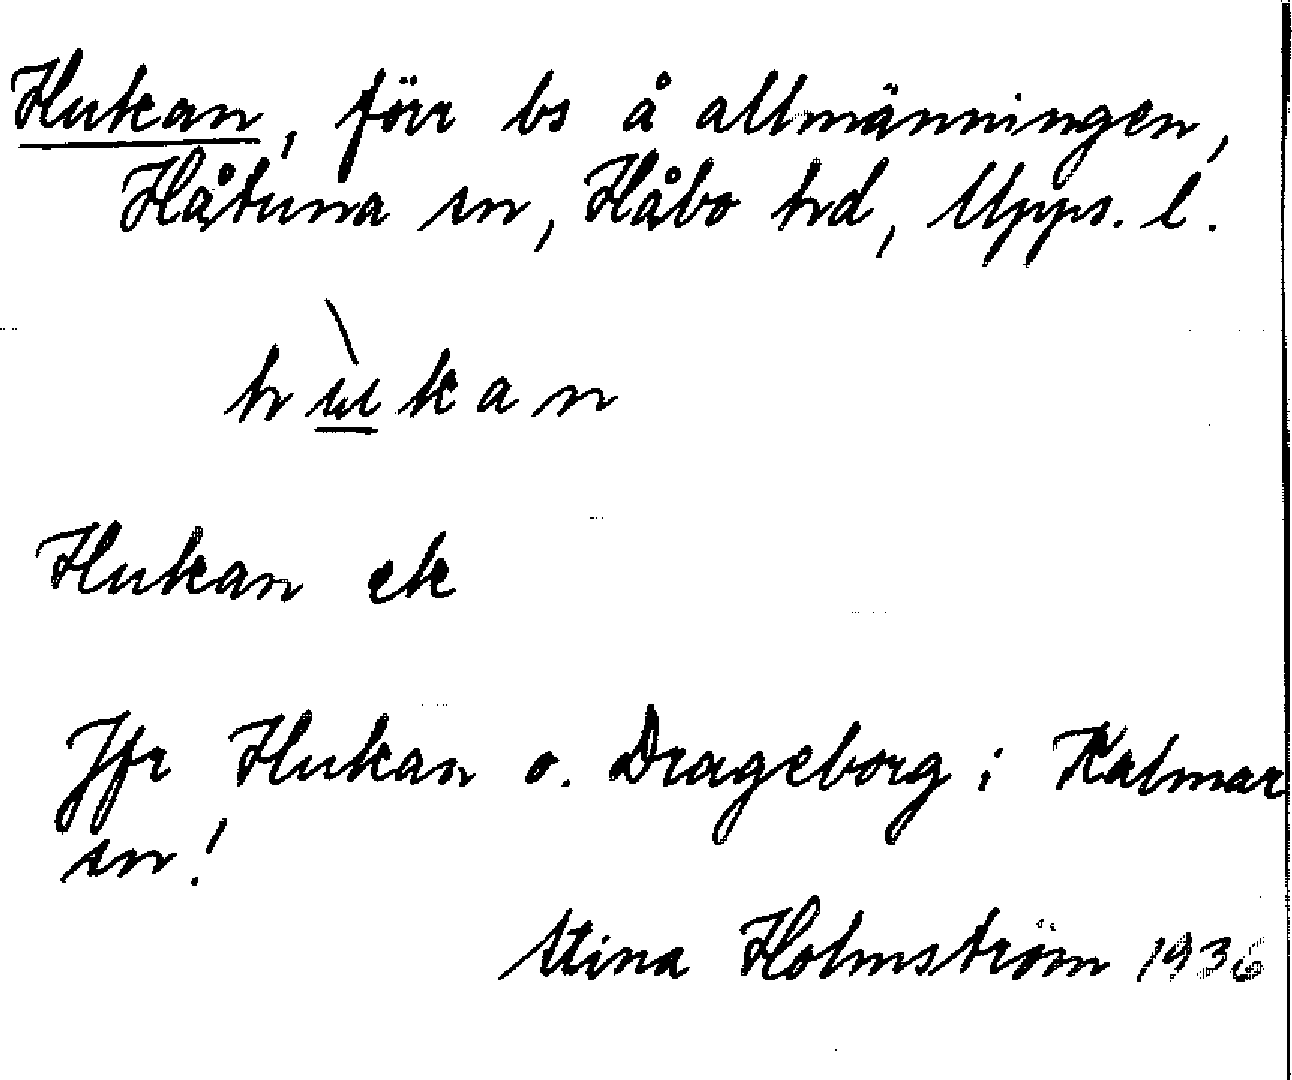 Hukan, förr bs å allmänningen,
Håtuna sn, Håbo hd, Upps. l.
hù̲kan
Hukan ek
Jfr Hukan o. Drageborg i Kalmar
sn!
Stina Holmström 1936